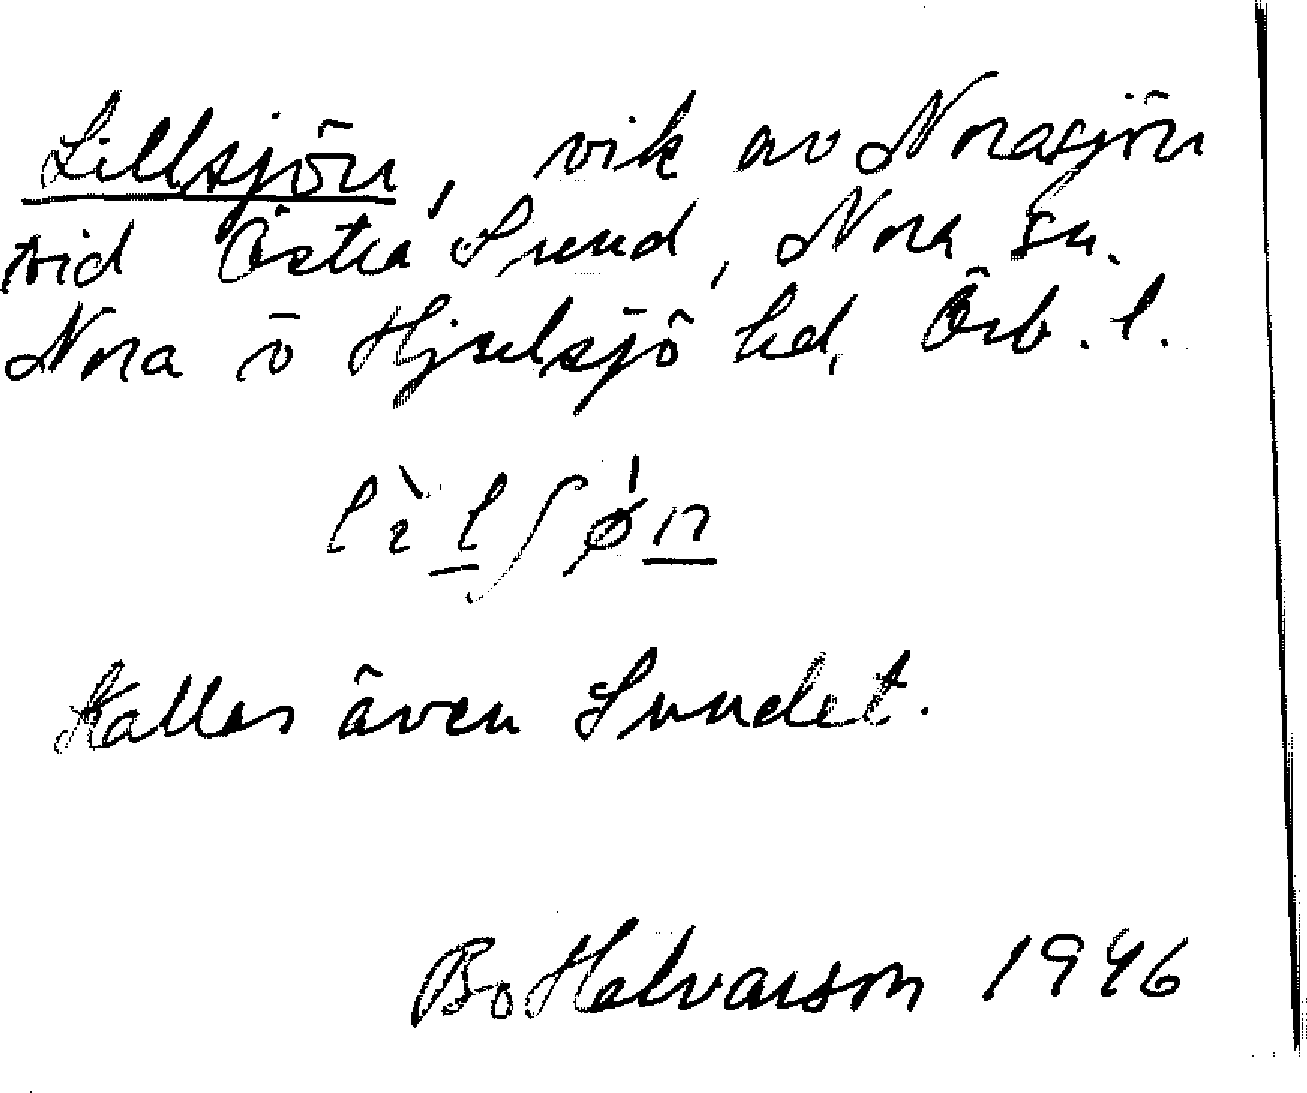 Lillsjön, vik av Norasjön
vid Östra Sund, Nora sn.
Nora o Hjulsjö hd, Örb. l.
lìlʃǿn
Kallas även Sundet.
Bo Halvarson 1946